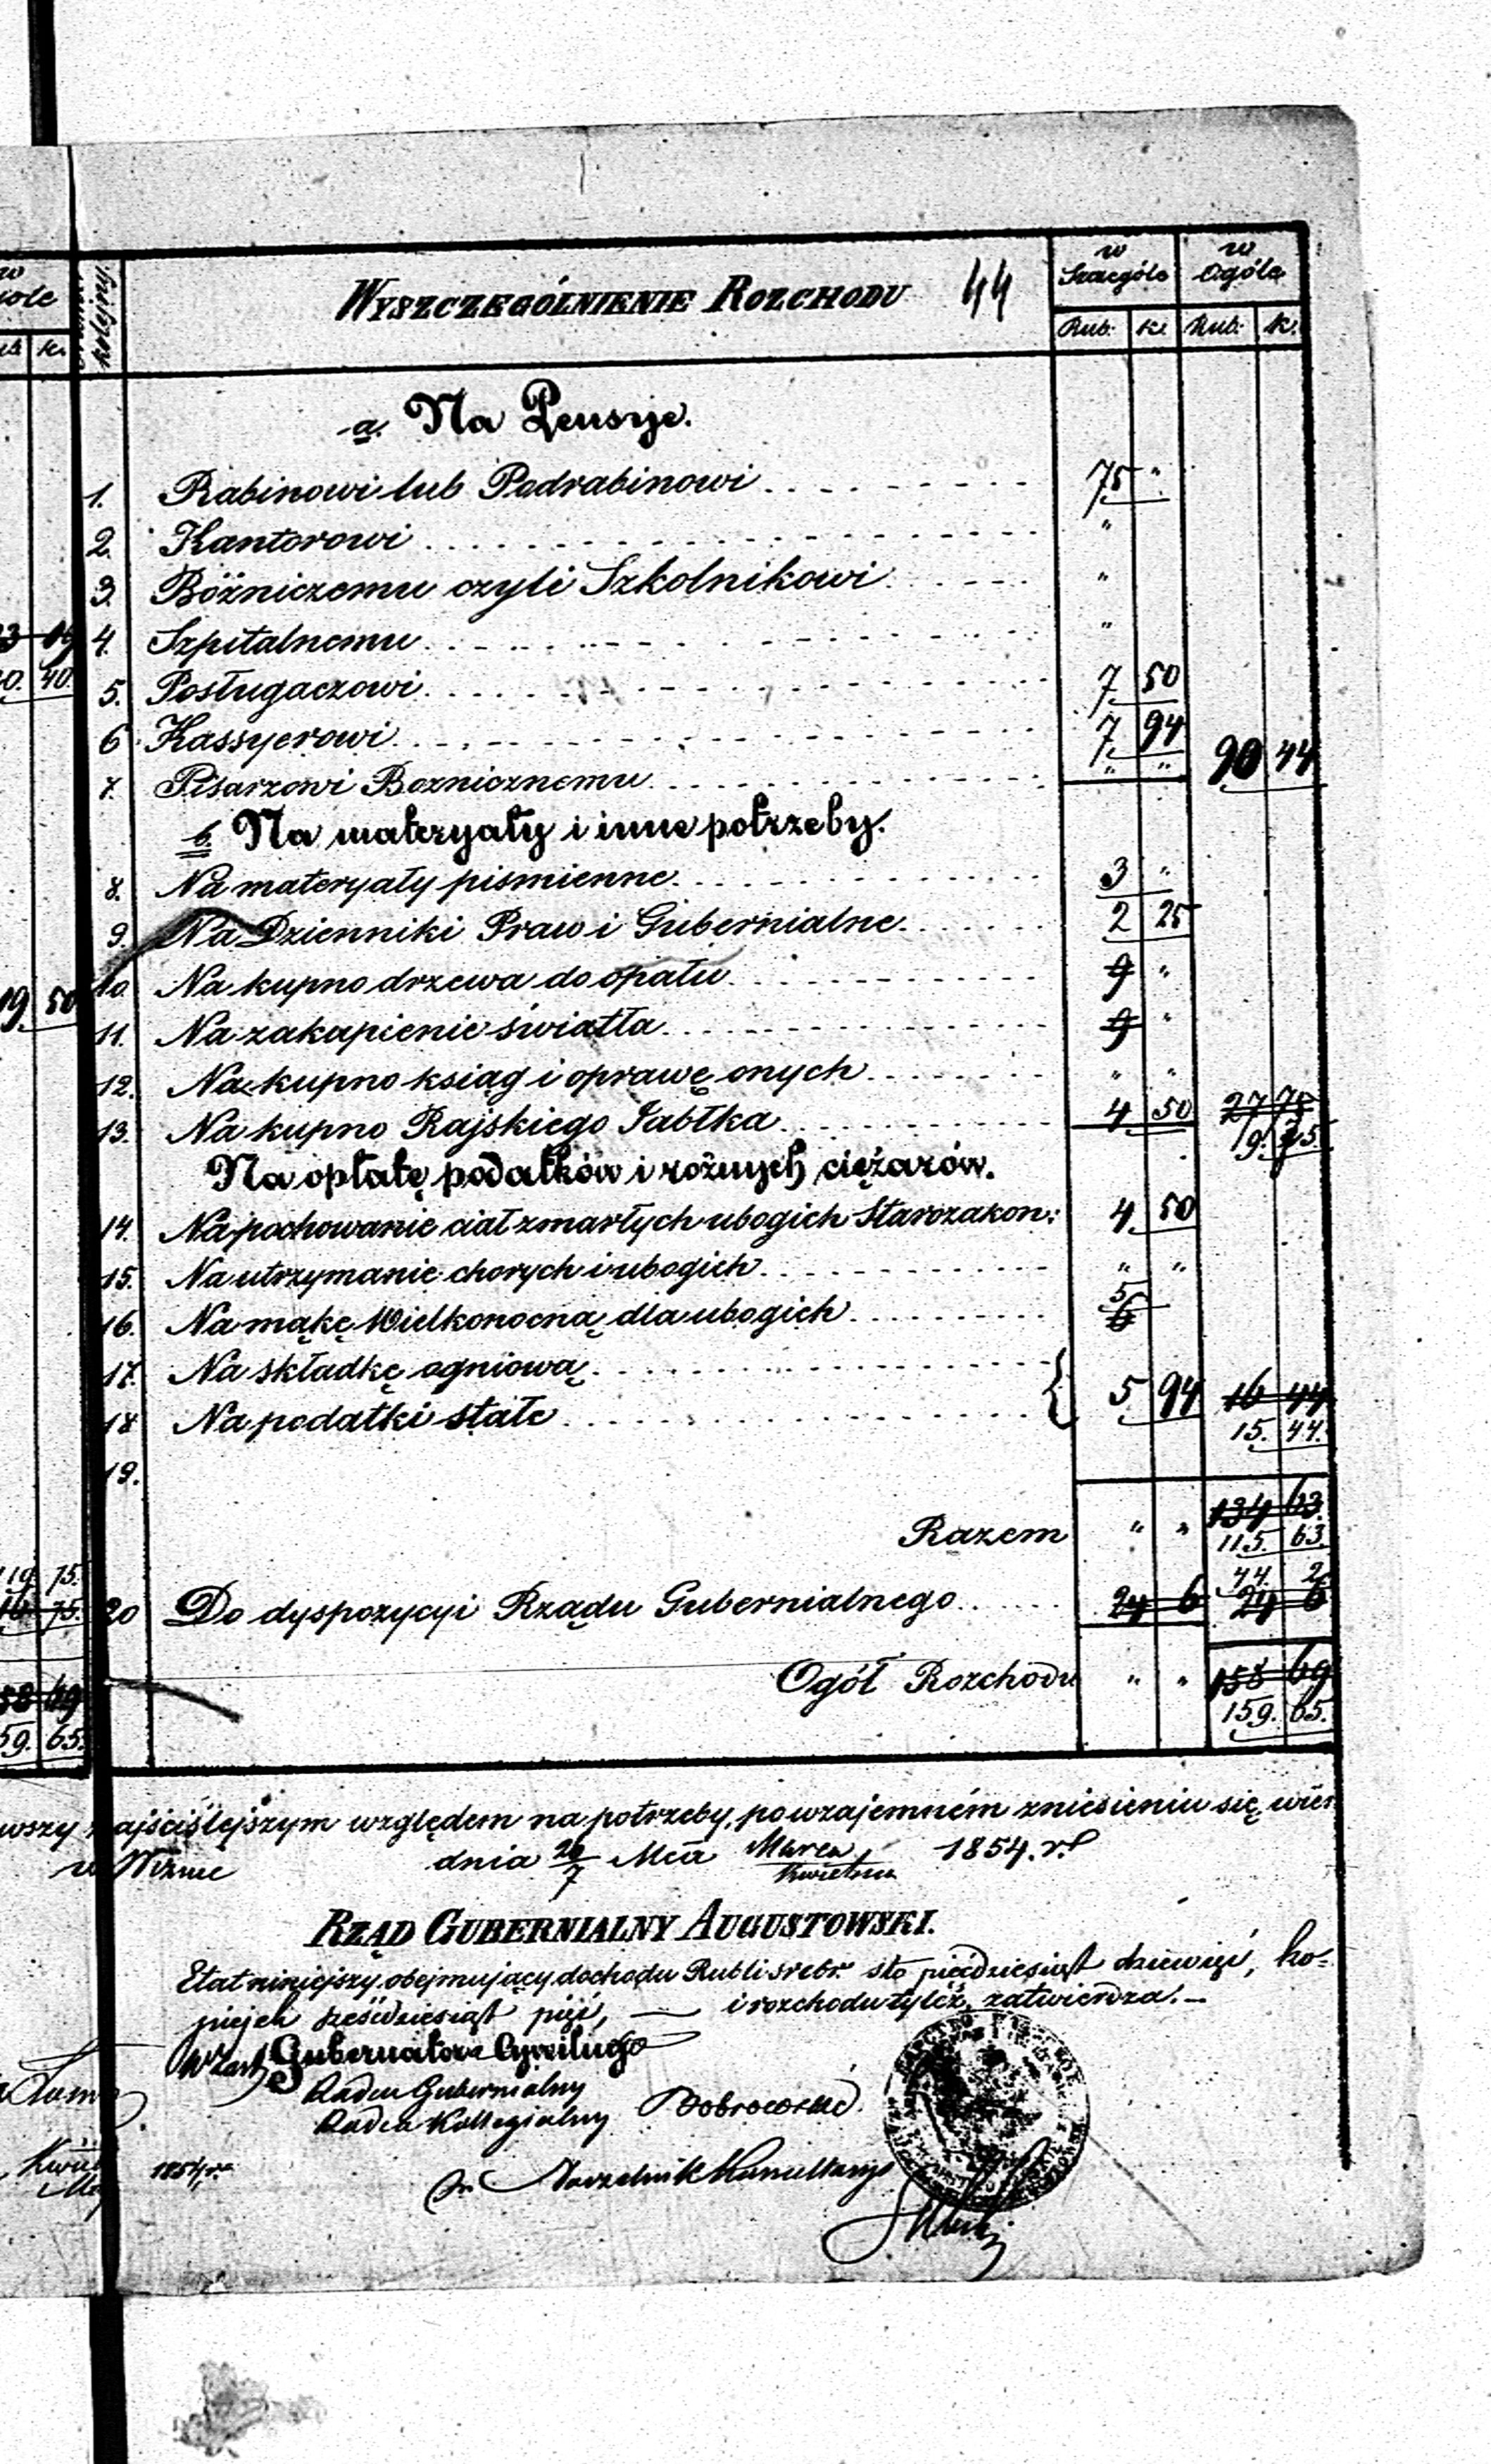 w Szczególe w Ogóle
kolejny
WYSZCZEGÓLNIENIE ROZCHODU 44
k. Rub. k. Rub. k.
a. Na Pensye.
1. Rabinowi lub Podrabinowi 75 "
2. Kantorowi "
3. Bóżniczemu czyli Szkolnikowi "
19 4. Szpitalnemu "
40. 5. Posługaczowi 7 50
6 Kassyerowi 7 94
7. Pisarzowi Boznicznemu " " 90 44
b. Na materyały i inne potrzeby.
8. Na materyały pismienne 3 "
9. Na Dzienniki Praw i Gubernialne 2 25
10. Na kupno drzewa do opału 9 "
19 50 11. Na zakupienie światła 9 "
12. Na kupno ksiąg i oprawę onych " "
13. Na kupno Rajskiego Jabłka 4 50 27 75
19. 75
Na opłatę podatków i rożnych ciężarów.
14. Na pochowanie ciał zmarłych ubogich Starozakon: 4 50
15. Na utrzymanie chorych i ubogich " "
16. Na mąkę Wielkonocną dla ubogich 5 6
17. Na składkę ogniową
18 Na podatki stałe 5 94 16 44
15. 44.
19.
Razem " " 134 63
115. 63.
119. 75. 44. 2
75. 20 Do dyspozycyi Rządu Gubernialnego 24 6 24 6
58 69 Ogół Rozchodu " " 158 69
59. 65. 159. 65.
wszy najściślejszym względem na potrzeby, po wzajemném zniesieniu się, wier
w Wiznie dnia 26/7 Mca Marca/Kwietnia 1854. r.
RZĄD GUBERNIALNY AUGUSTOWSKI.
Etat niniejszy, obejmujący dochodu Rubli srebr. sto pięćdziesiąt dziewięć, ko-
piejek sześćdziesiąt pięć, — i rozchodu tyleż, zatwierdza. —
w Zast. Gubernatora Cywilnego
Radca Gubernialny
Radca Kollegialny
1854 r.
Naczelnik Kancellaryi